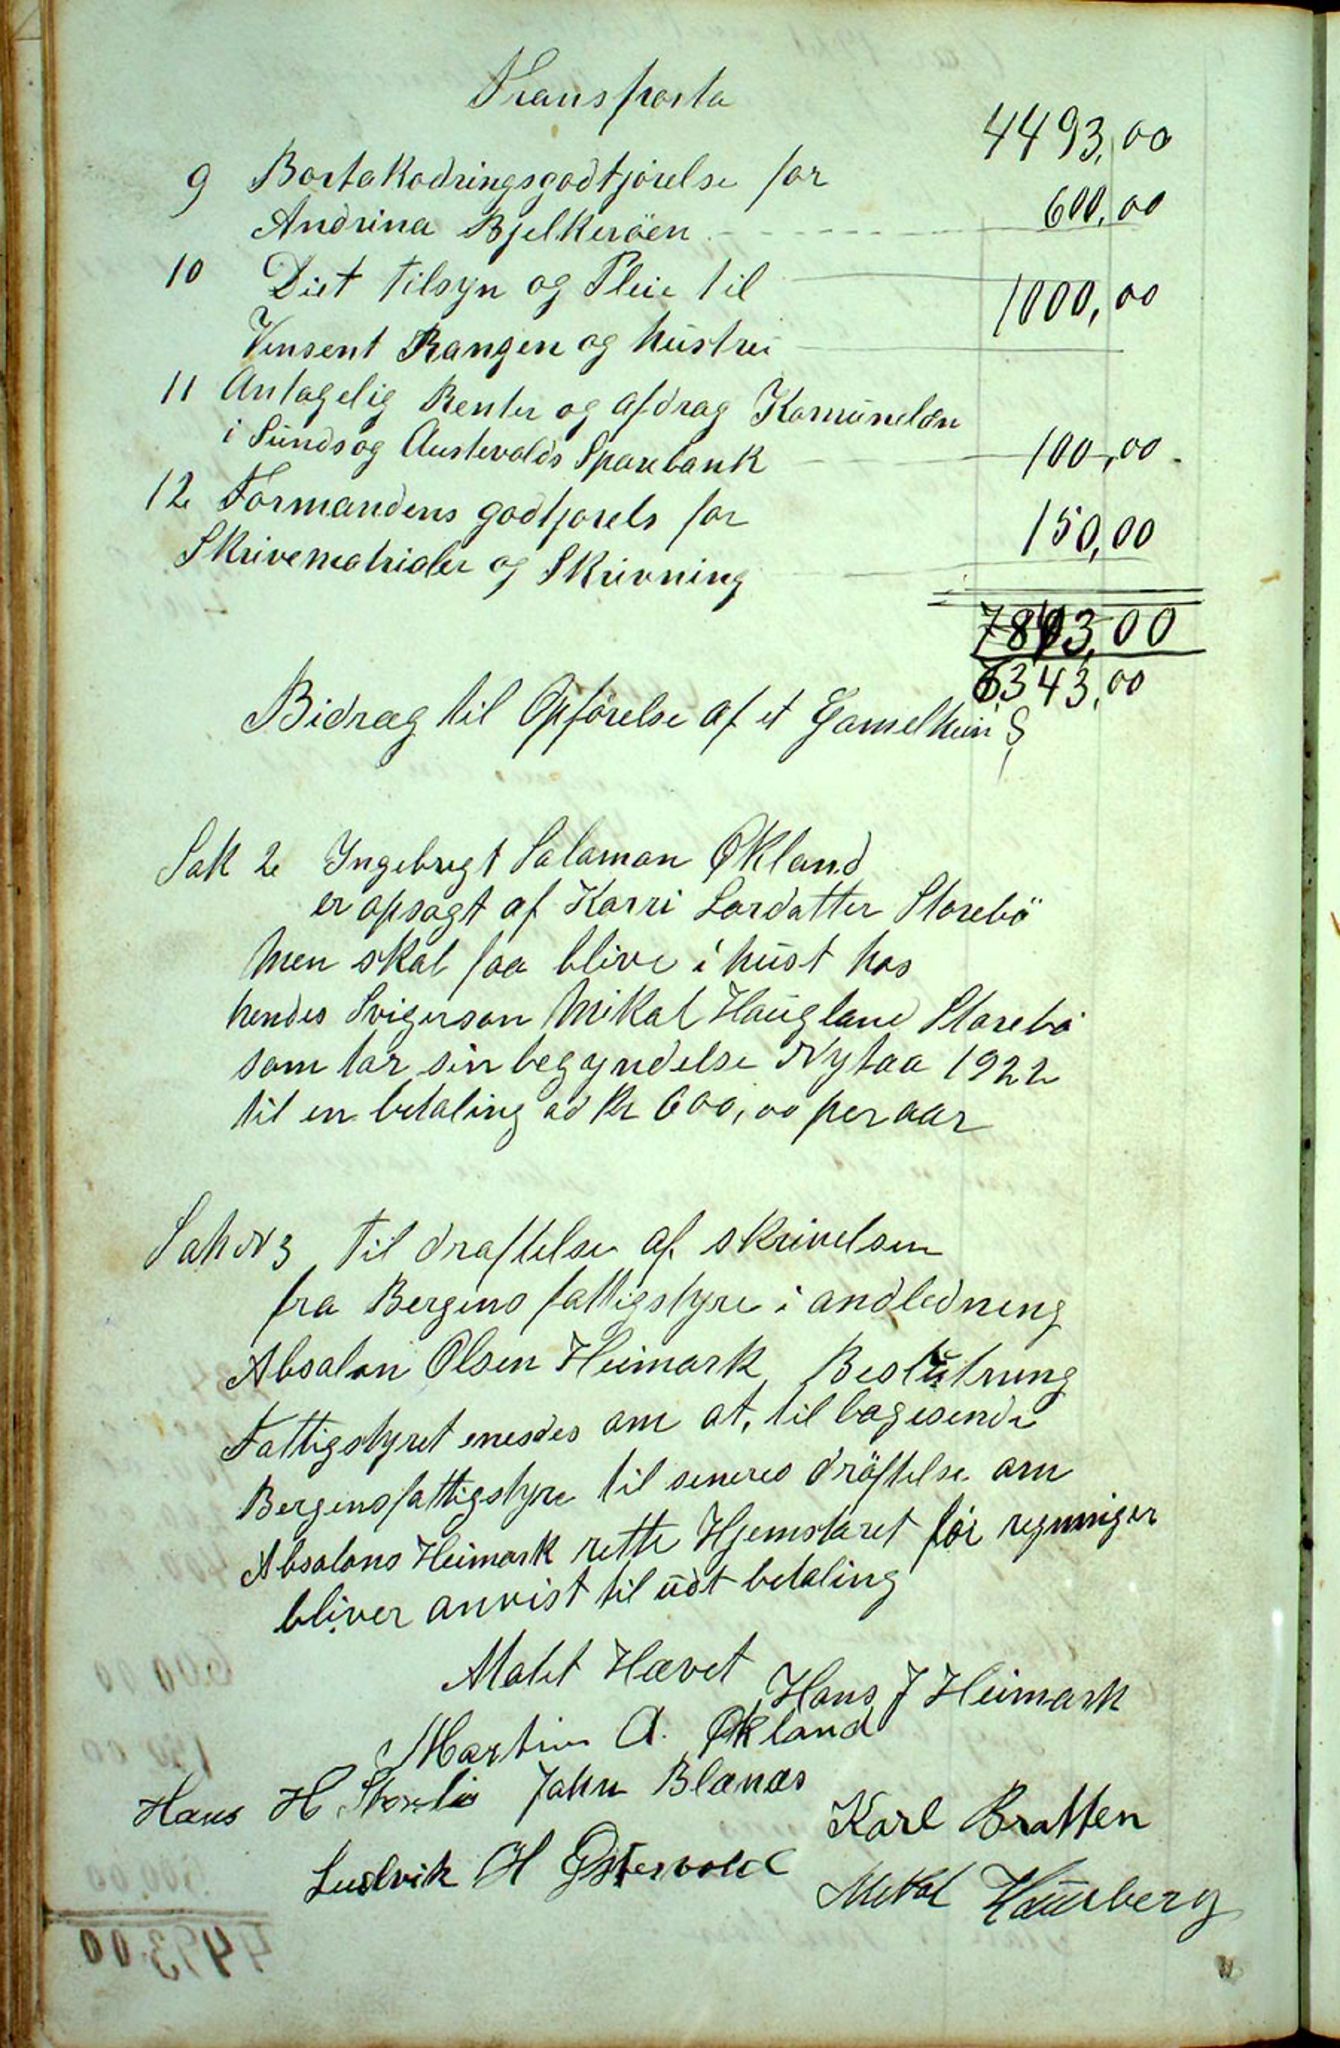 Transporta
4493,00
9 Bortakodringsgodtjørelse for
Andrina Bjelkerøen 600,00
10 Diet tilsyn og Pleie til
Vinsent Rangen og hustru 1000,00
11 Antagelig Renter og afdrag Komunelån
i Sunds og Austevolds Sparebank 100,00
12 Formandens godtjørels for
Skrivematrialer og Skrivning 150,00
6343,00
Bidrag til Opførelse af et Gamelheim
Sak 2 Ingebrigt Salaman Økland
er opsagt af Karri Lardatter Storebö
Men skal faa blive i hust hos
hendes Svigerson Mikal Haugland Storebø
som tar sin begyndelse Nytaa 1922
til en betaling ad kr 600,00 per aar
Sak N 3 til draftelse af skrivelsen
fra Bergens fattigstyre i andledning
Absalon Olsen Heimark, Beslutning
Fattigstyret enesdes om at, tilbagesende
Bergensfattigstyre til seneres dröftelse om
Absalons Heimark rette Hjemstaret før regninger
bliver anvist til udt betaling
Hævet Hans J Heimark
Martin A. Økland
Hans H Jahn Blænæs
Karl Bratten
Ludvik H Østervold
Mikal